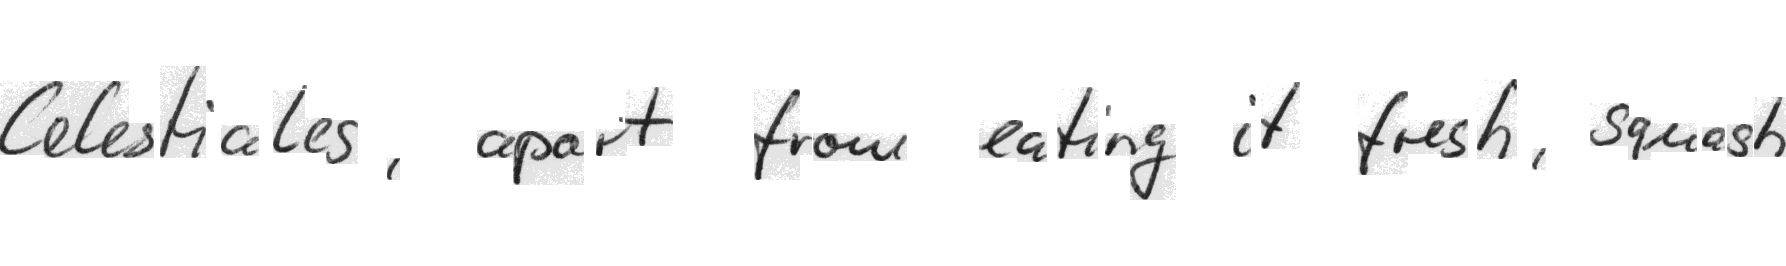 Celestiales, apart from eating it fresh, squash